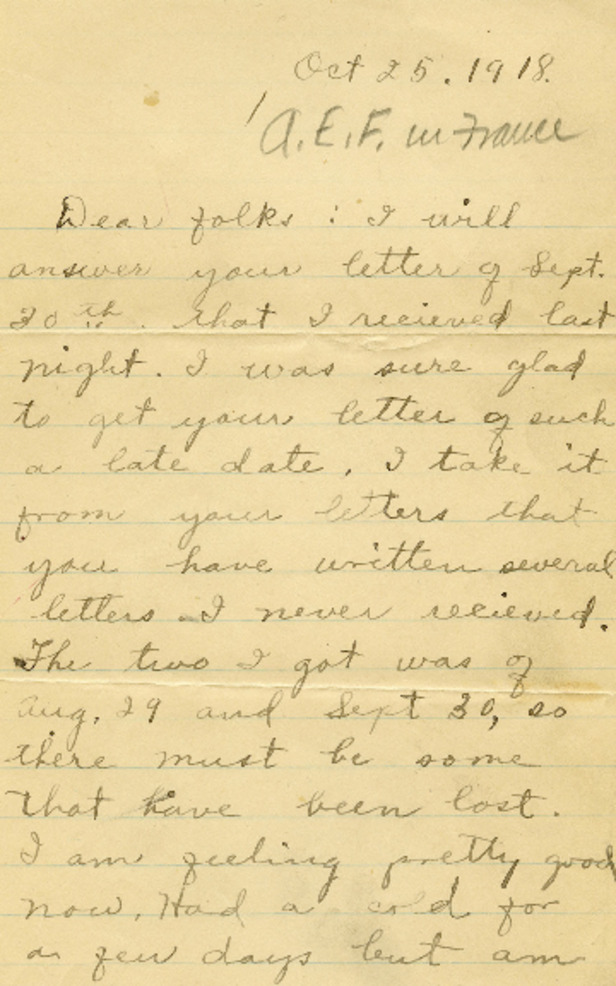 Oct 25. 1918.
A.E.F. in France
Dear folks : I will
answer your letter of Sept.
30th. that I recieved last
night. I was sure glad
to get your letter of such
a late date. I take it
from your letters that
you have written several
letters I never recieved.
The two I got was of
Aug. 29 and Sept 30, so
there must be some
that have been lost.
I am feeling pretty good
now. Had a cold for
a few days but am